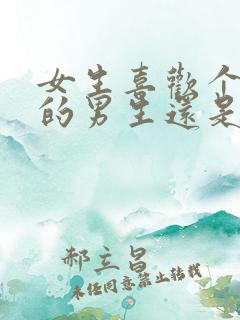 女生喜歡个
的男生還是
郝立昌
未经同意禁止转载